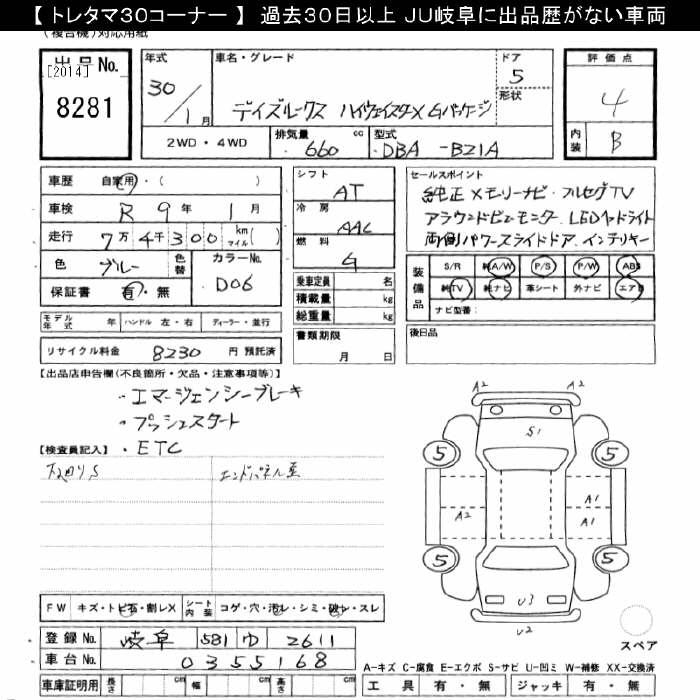 【 トレタマ30コーナー 】 過去30日以上 JU岐阜に出品歴がない車両
(複合機)対応用紙
出品 No.
[2014]
8281
年式
30／1月
車名・グレード
デイズルークス ハイウェイスターX Gパッケージ
ドア
5
形状
評価点
4
内装
B
2WD・4WD
排気量
660
cc
型式
DBA -B21A
車歴 自家用・( )
車検 R 9年 1月
走行 7万 4千 300 km マイル( )
色 ブルー
色替
カラーNo.
D06
保証書 有・無
シフト
AT
冷房
AAC
燃料
G
乗車定員 名
積載量 kg
総重量 kg
セールスポイント
純正メモリーナビ・フルセグTV
アラウンドビューモニター LEDヘッドライト
両側パワースライドドア インテリキー
装備品
S/R 純A/W P/S P/W ABS
純TV 純ナビ 革シート 外ナビ エアB
ナビ型番:
モデル年式 年 ハンドル 左・右 ディーラー・並行
書類期限
月 日
後日品
リサイクル料金 8230 円 預託済
【出品店申告欄(不良箇所・欠品・注意事項等)】
・エマージェンシーブレーキ
・プッシュスタート
・ETC
【検査員記入】
下廻りS
エンドパネル歪
A2
A2
S1
5
5
A2
A1
A1
5
5
U3
U2
スペア
FW キズ・トビ石・割レX
シート内装 コゲ・穴・汚レ・シミ・破ケ・スレ
登録 No. 岐阜 581 ゆ 2611
車台 No. 0355168
A-キズ C-腐食 E-エクボ S-サビ U-凹ミ W-補修 XX-交換済
車庫証明用 長さ cm 幅 cm 高さ cm
工具 有・無 ジャッキ 有・無